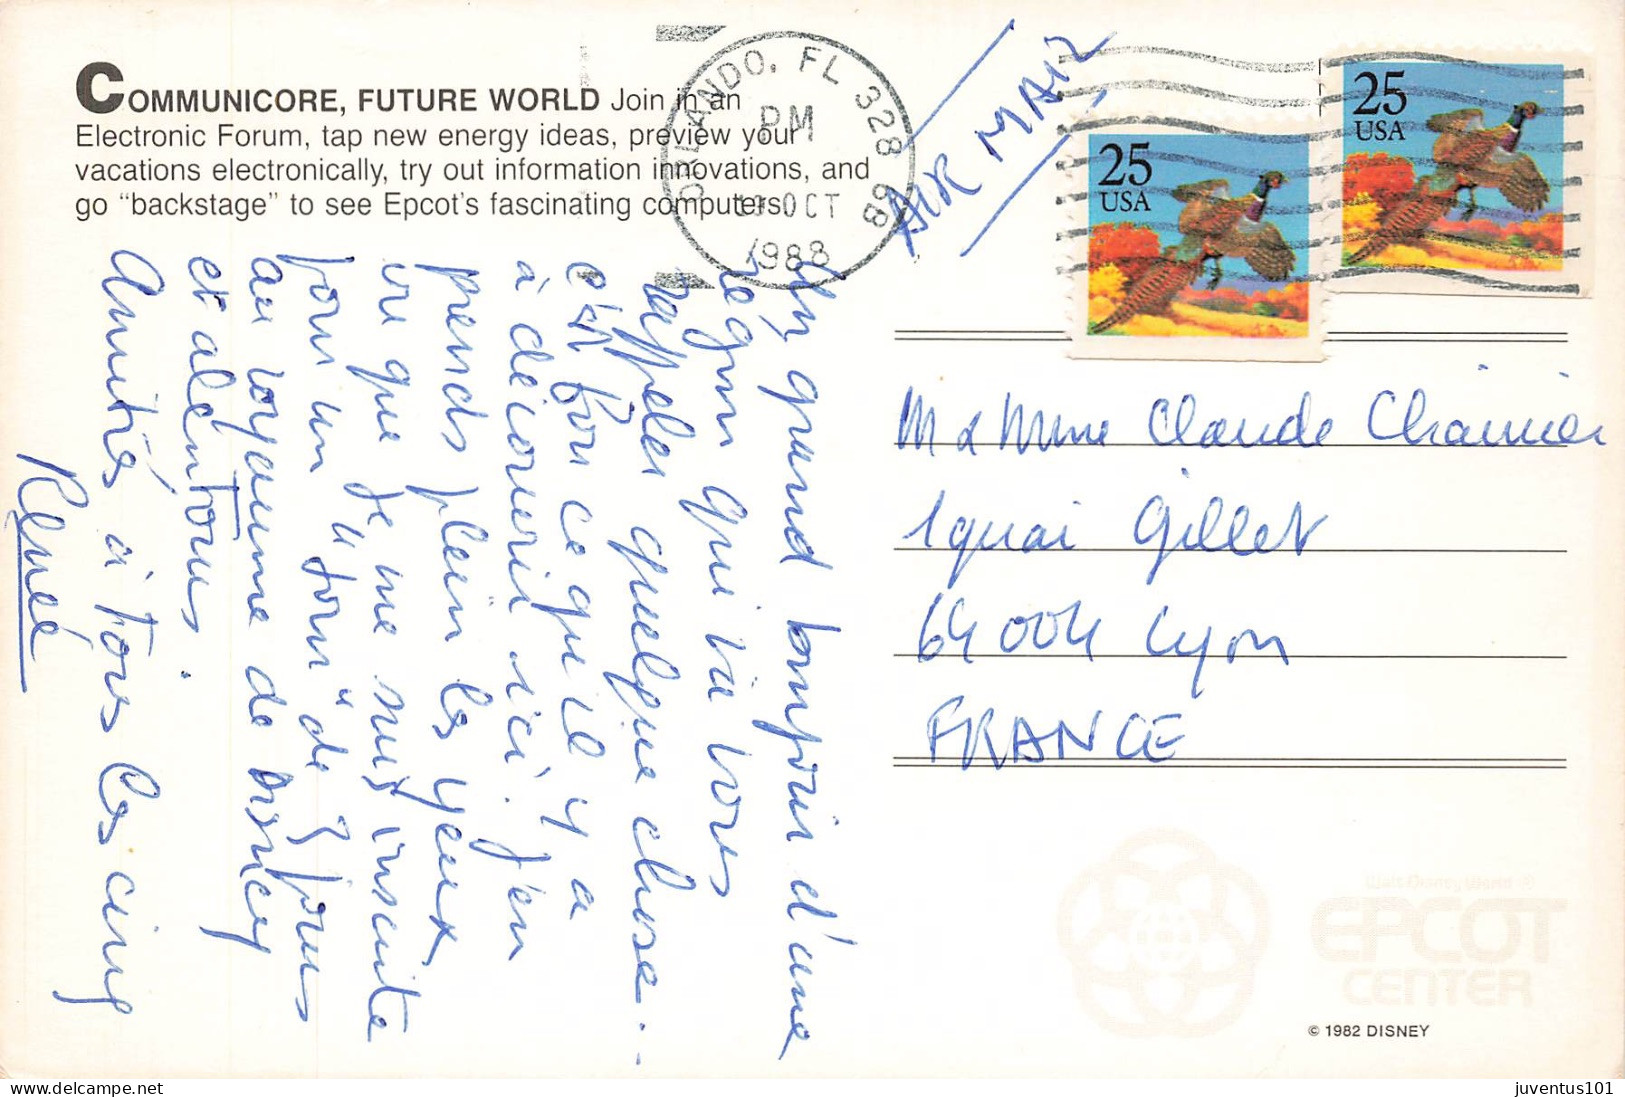 COMMUNICORE, FUTURE WORLD Join in an
Electronic Forum, tap new energy ideas, preview your
vacations electronically, try out information innovations, and
go "backstage" to see Epcot's fascinating computers.
ORLANDO, FL 328 68
PM
OCT
1988
AIR MAIL
25
USA
25
USA
Un grand bonjour d'une
région qui va vous
rappeler quelque chose...
c'est fou ce qu'il y a
à découvrir ici. J'en
prends plein les yeux,
vu que je me suis inscrite
pour un "tour" de 3 jours
au royaume de Disney
et alentours.
Amitiés à tous les cinq
Renée
M & Mme Claude
1 quai Gillet
69004 Lyon
FRANCE
Walt Disney World ®
EPCOT
CENTER
© 1982 DISNEY
juventus101